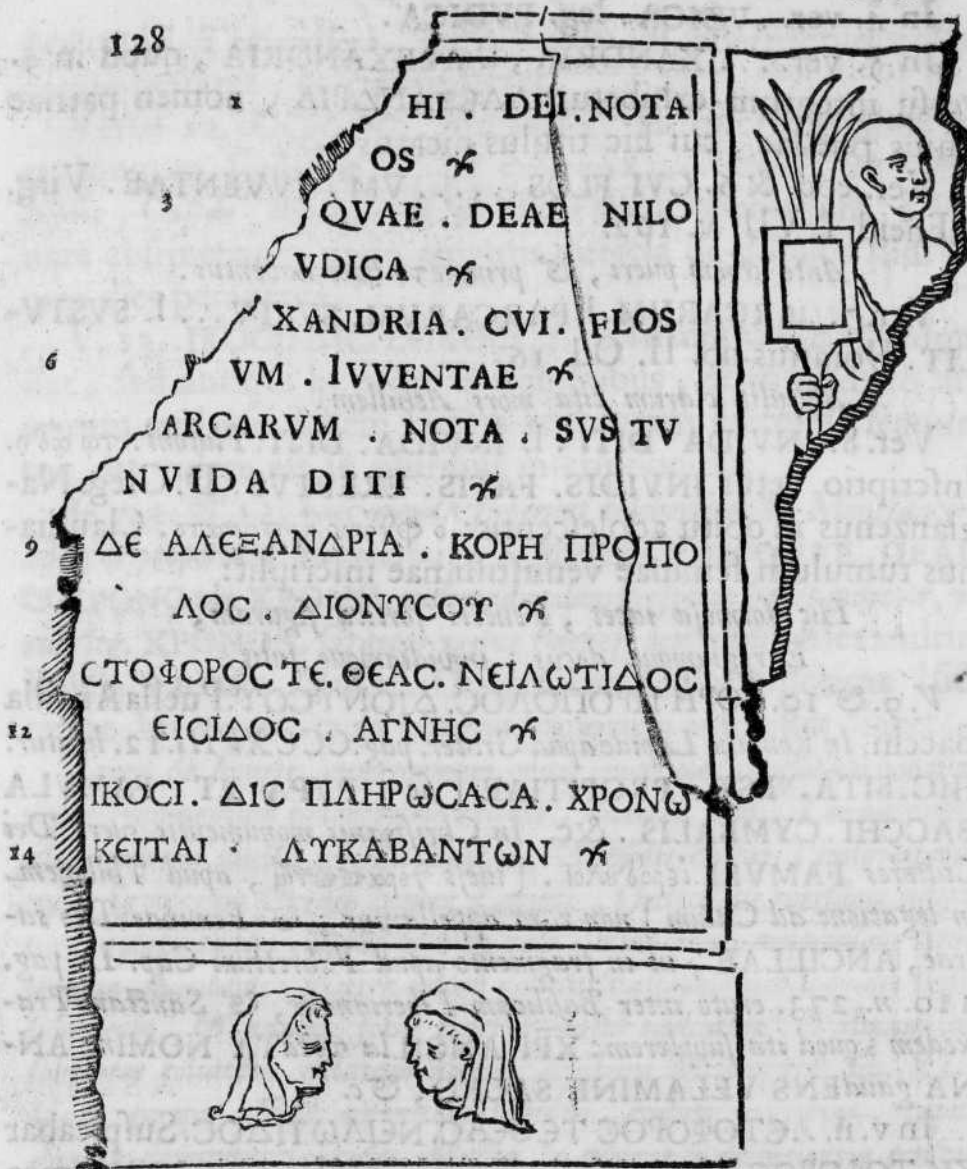 128
1 HI . DEI . NOTA
OS
3 QVAE . DEAE NILO
VDICA
XANDRIA . CVI . FLOS
6 VM . IVVENTAE
ARCARVM . NOTA . SVSTV
NVIDA DITI
9 ΔЄ ΑΛЄΞΑΝΔΡΙΑ . ΚΟΡΗ ΠΡΟΠΟ
ΛΟC ΔΙΟΝΥCΟΥ
CΤΟΦΟΡΟC ΤЄ. ΘЄΑC. ΝЄΙΛωΤΙΔΟC
12 ЄΙCΙΔΟC . ΑΓΝΗC
ΙΚΟCΙ . ΔΙC ΠΛΗΡωCΑCΑ . ΧΡΟΝω
14 ΚЄΙΤΑΙ · ΛΥΚΑΒΑΝΤωΝ